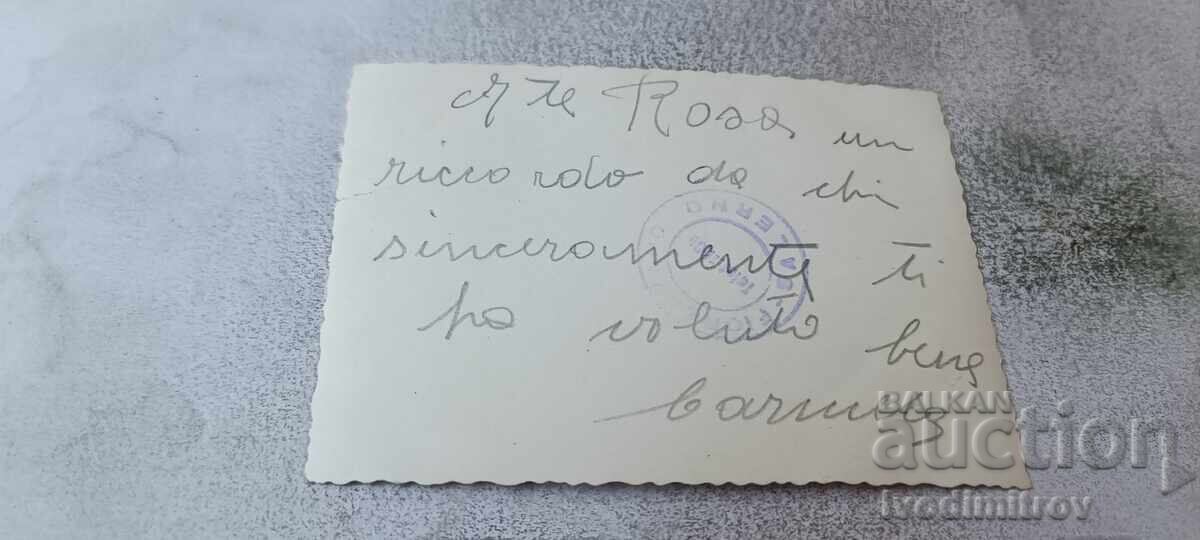 A te Rosa un
riccordo da chi
sinceramente ti
ha voluto bene
Carmine
SALERNO
BALKAN
auction
ivodimitrov